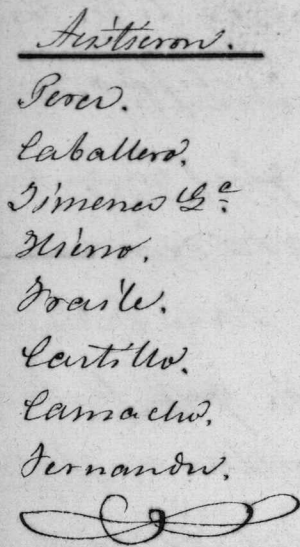 Asistieron.
Perez.
Caballero.
Jimenes Gª.
Hierro.
Fraile.
Castillo.
Camacho.
Fernandez.